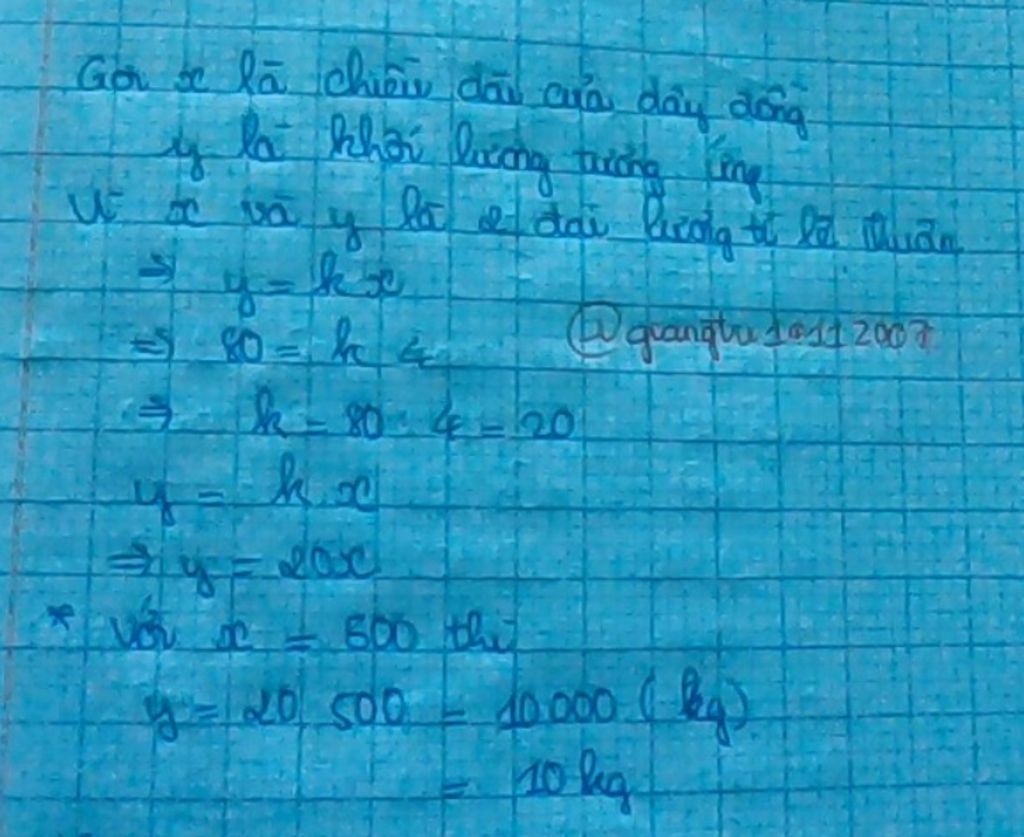 Gọi x là chiều dài của dây đồng
y là khối lượng tương ứng
Vì x và y là 2 đại lượng tỉ lệ thuận
⇒ y = k x
⇒ 80 = k 4
@quangtu10112007
⇒ k = 80 : 4 = 20
y = k x
⇒ y = 20x
* Với x = 500 thì
y = 20 500 = 10.000 (kg)
= 10 kg